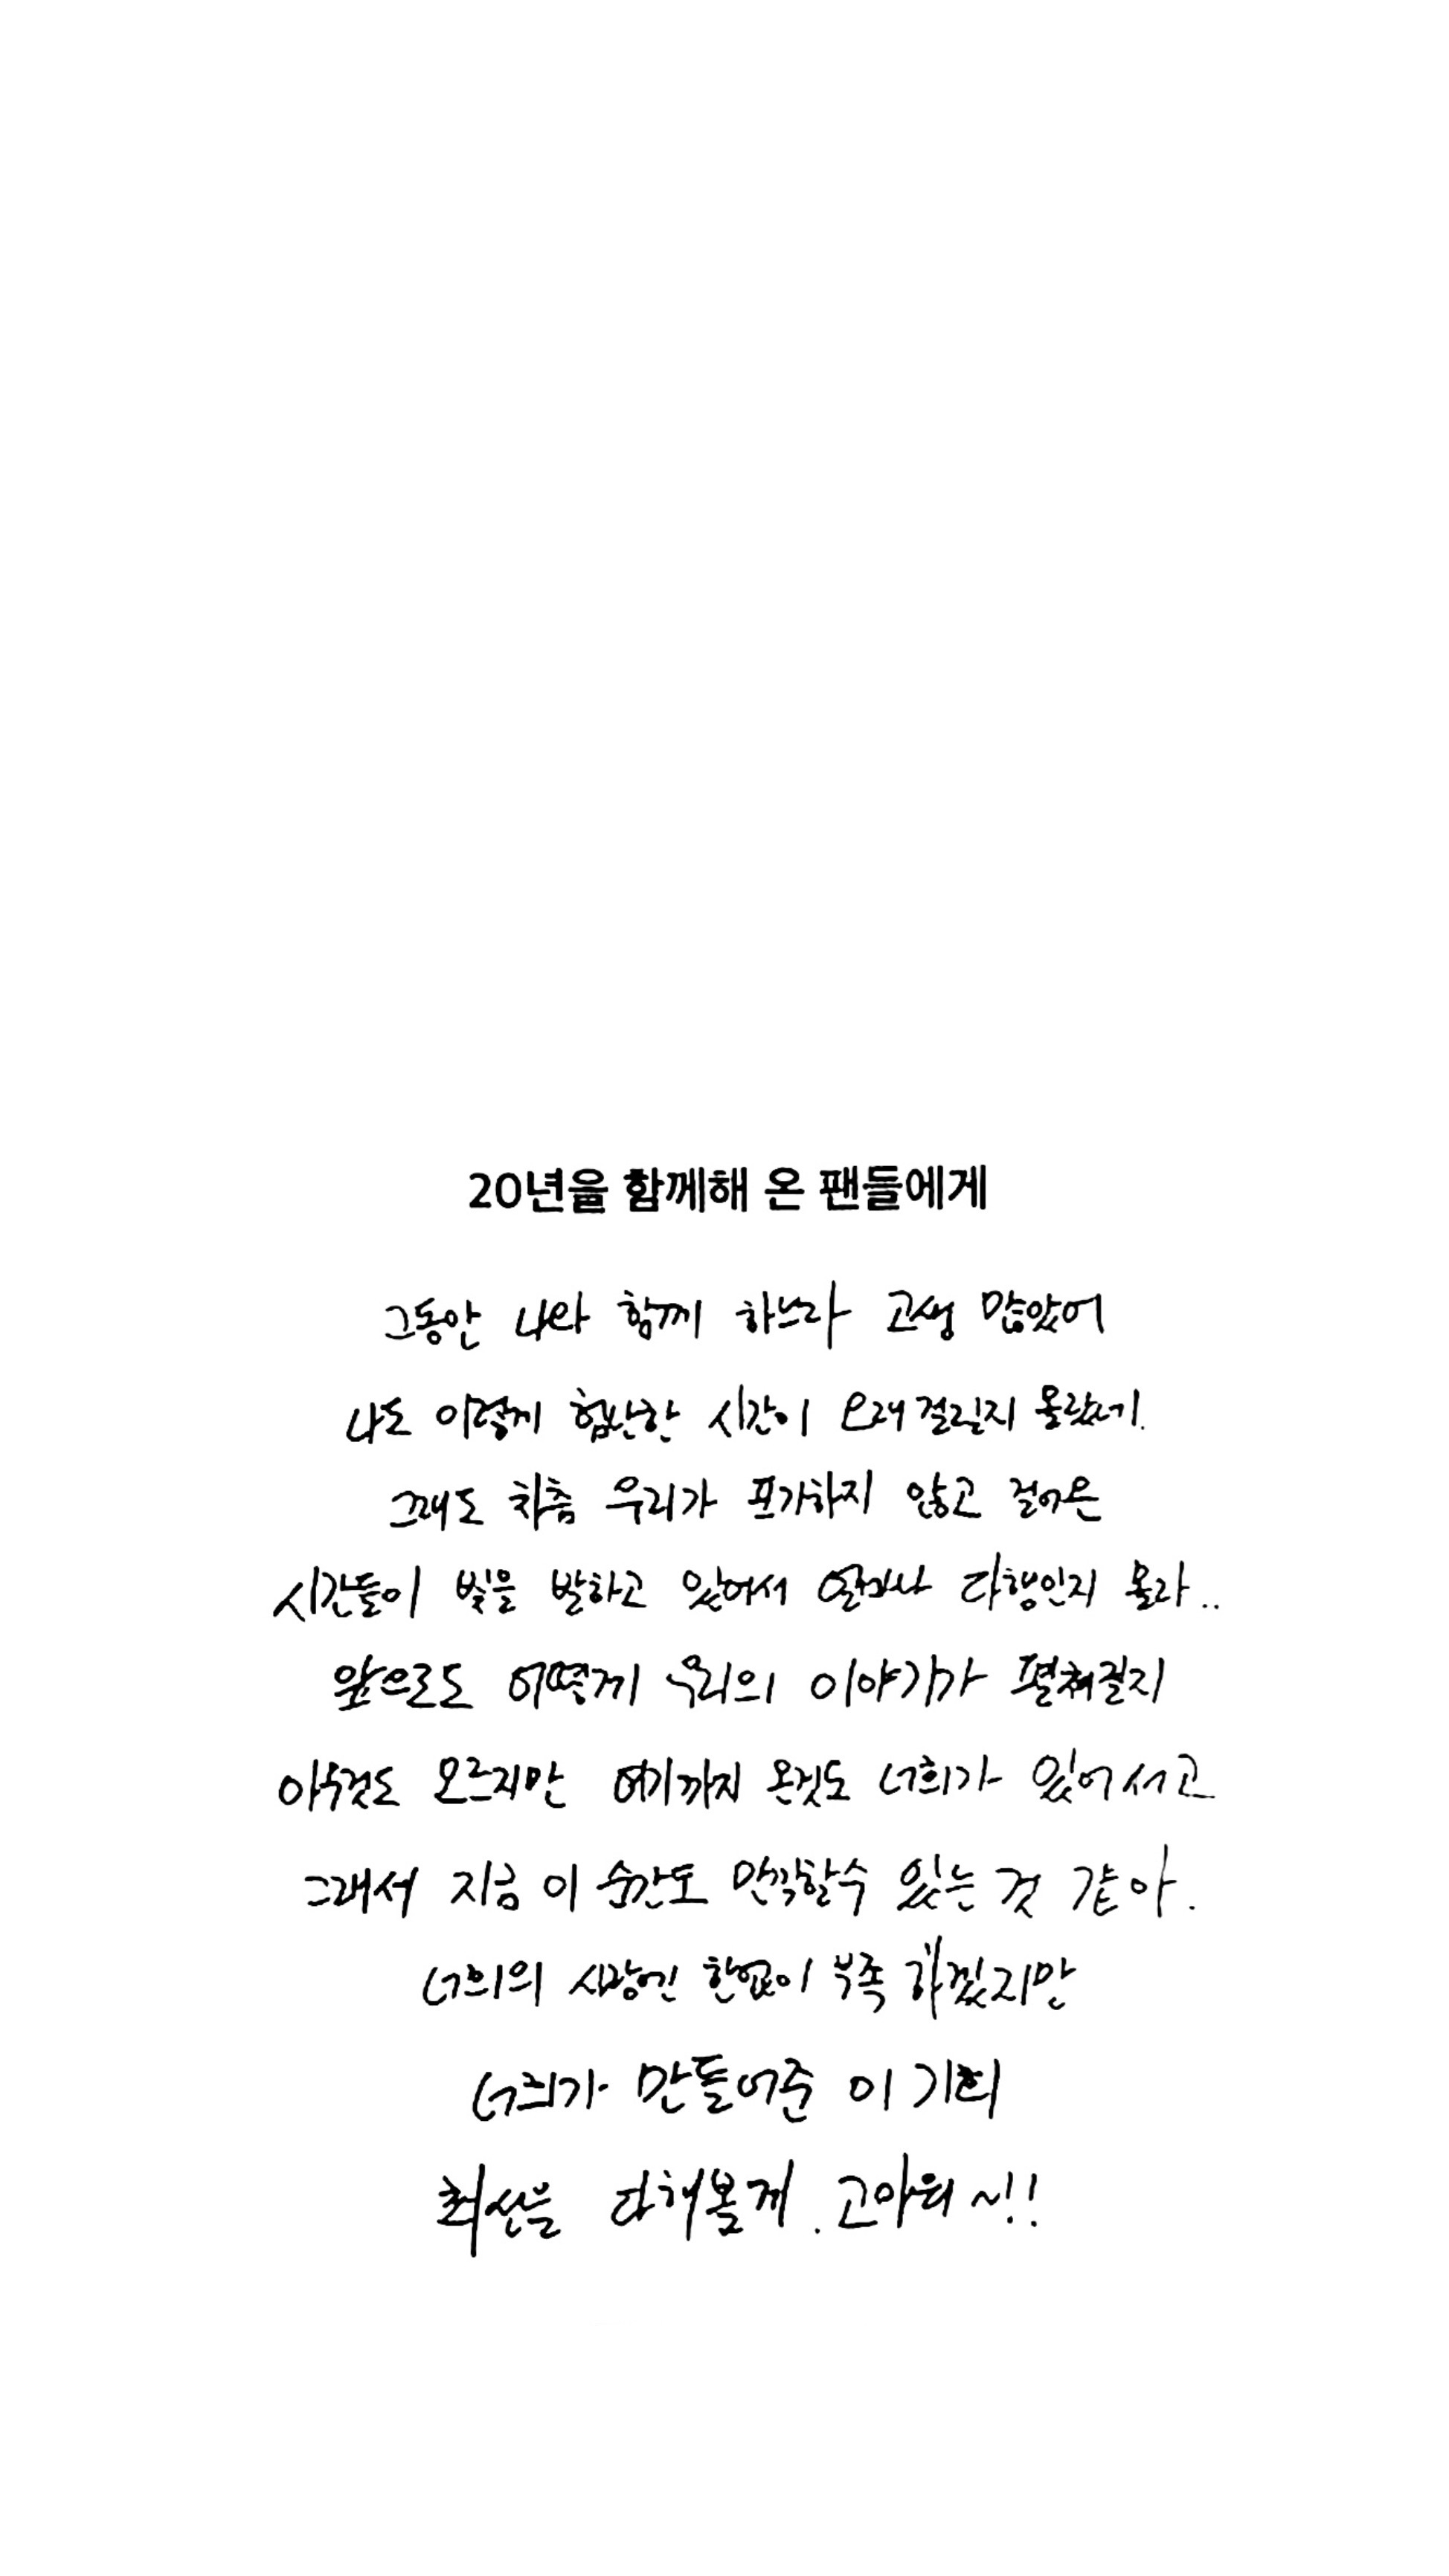 20년을 함께해 온 팬들에게
그동안 나와 함께 하느라 고생 많았어
나도 이렇게 험난한 시간이 오래걸릴지 몰랐네.
그래도 차츰 우리가 포기하지 않고 걸어온
시간들이 빛을 발하고 있어서 얼마나 다행인지 몰라..
앞으로도 어떻게 우리의 이야기가 펼쳐질지
아무것도 모르지만 여기까지 온것도 너희가 있어서고
그래서 지금 이 순간도 만끽할수 있는 것 같아.
너희의 사랑엔 한없이 부족 하겠지만
너희가 만들어준 이 기회
최선을 다해볼게. 고마워~!!